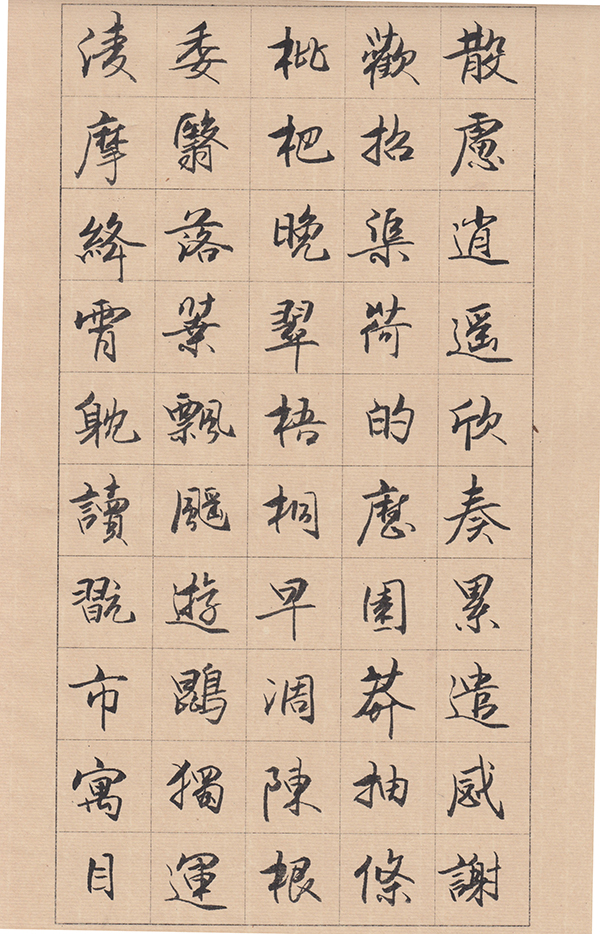 散慮逍遥欣奏累遣慼謝
歡招渠荷的歷園莽抽條
枇杷晚翠梧桐早凋陳根
委翳落葉飄颻遊鵾獨運
淩摩絳霄躭讀翫市寓目